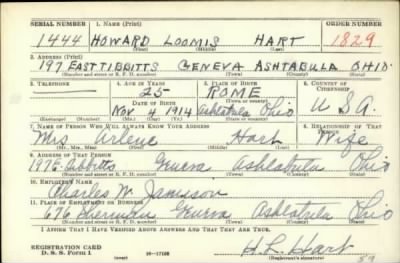 SERIAL NUMBER 1. NAME (Print) ORDER NUMBER
1444 HOWARD LOOMIS HART 1829
(First) (Middle) (Last)
2. ADDRESS (Print)
197 EAST TIBBITTS GENEVA ASHTABULA OHIO
(Number and street or R. F. D. number) (Town) (County) (State)
3. TELEPHONE 4. AGE IN YEARS 5. PLACE OF BIRTH 6. COUNTRY OF
CITIZENSHIP
25 ROME
DATE OF BIRTH (Town or county)
Nov 4 1914 Ashtabula Ohio U S A.
(Exchange) (Number) (Mo.) (Day) (Yr.) (State or country)
7. NAME OF PERSON WHO WILL ALWAYS KNOW YOUR ADDRESS 8. RELATIONSHIP OF THAT
PERSON
Mrs Arlene Hart Wife
(Mr., Mrs., Miss) (First) (Middle) (Last)
9. ADDRESS OF THAT PERSON
197 E. Tibbitts Geneva Ashtabula Ohio
(Number and street or R. F. D. number) (Town) (County) (State)
10. EMPLOYER'S NAME
Charles W. Jamieson
11. PLACE OF EMPLOYMENT OR BUSINESS
676 Sherman Geneva Ashtabula Ohio
(Number and street or R. F. D. number) (Town) (County) (State)
I AFFIRM THAT I HAVE VERIFIED ABOVE ANSWERS AND THAT THEY ARE TRUE.
REGISTRATION CARD
D. S. S. Form 1 16-17105 H. L. Hart
(Registrant's signature)